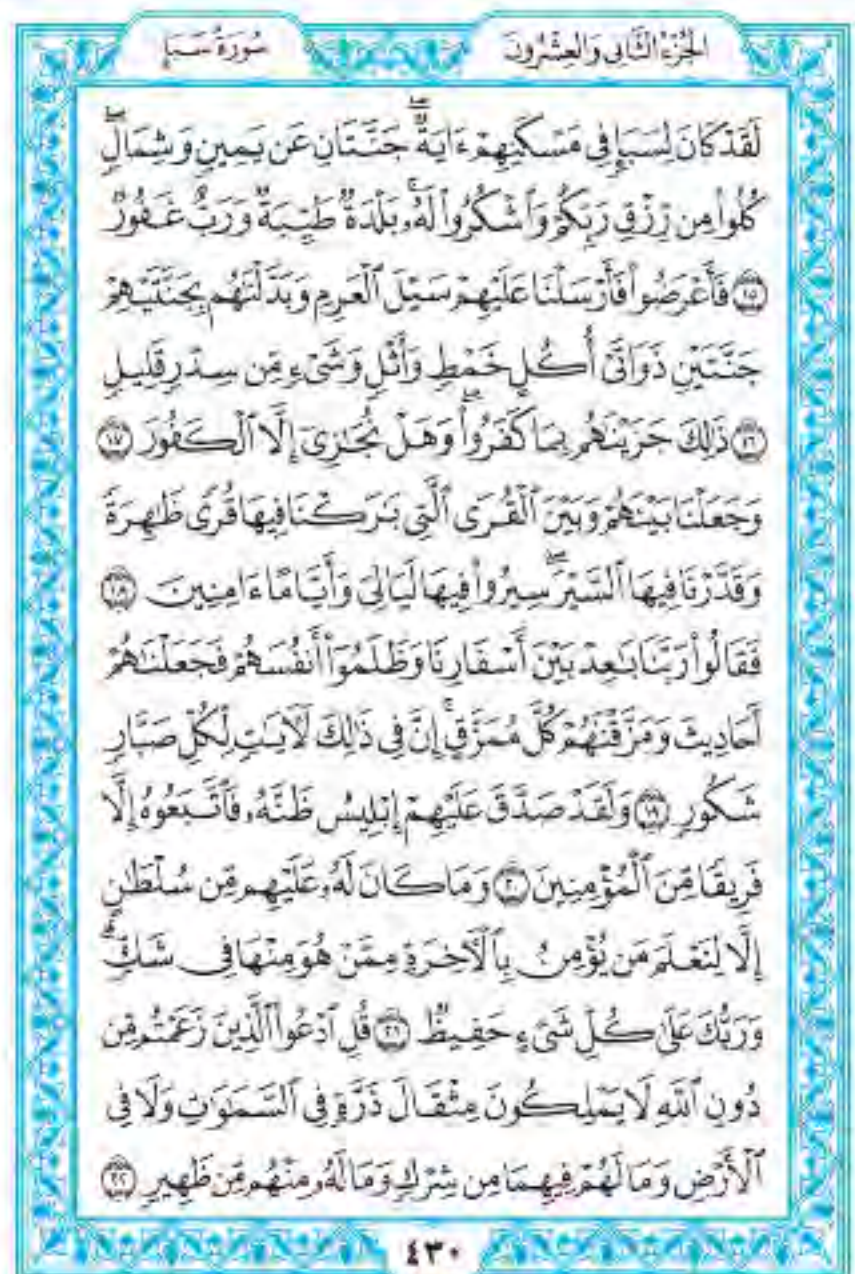 الجُزْءُ الثَّانِي وَالعِشْرُونَ
سُورَةُ سَبَإٍ
لَقَدْ كَانَ لِسَبَإٍ فِي مَسْكَنِهِمْ ءَايَةٌۖ جَنَّتَانِ عَن يَمِينٍ وَشِمَالٍۖ
كُلُوا۟ مِن رِّزْقِ رَبِّكُمْ وَٱشْكُرُوا۟ لَهُۥۚ بَلْدَةٌ طَيِّبَةٌ وَرَبٌّ غَفُورٌ
١٥ فَأَعْرَضُوا۟ فَأَرْسَلْنَا عَلَيْهِمْ سَيْلَ ٱلْعَرِمِ وَبَدَّلْنَٰهُم بِجَنَّتَيْهِمْ
جَنَّتَيْنِ ذَوَاتَىْ أُكُلٍ خَمْطٍ وَأَثْلٍ وَشَىْءٍ مِّن سِدْرٍ قَلِيلٍ
١٦ ذَٰلِكَ جَزَيْنَٰهُم بِمَا كَفَرُوا۟ۖ وَهَلْ نُجَٰزِىٓ إِلَّا ٱلْكَفُورَ ١٧
وَجَعَلْنَا بَيْنَهُمْ وَبَيْنَ ٱلْقُرَى ٱلَّتِى بَٰرَكْنَا فِيهَا قُرًى ظَٰهِرَةً
وَقَدَّرْنَا فِيهَا ٱلسَّيْرَۖ سِيرُوا۟ فِيهَا لَيَالِىَ وَأَيَّامًا ءَامِنِينَ ١٨
فَقَالُوا۟ رَبَّنَا بَٰعِدْ بَيْنَ أَسْفَارِنَا وَظَلَمُوٓا۟ أَنفُسَهُمْ فَجَعَلْنَٰهُمْ
أَحَادِيثَ وَمَزَّقْنَٰهُمْ كُلَّ مُمَزَّقٍۚ إِنَّ فِى ذَٰلِكَ لَءَايَٰتٍ لِّكُلِّ صَبَّارٍ
شَكُورٍ ١٩ وَلَقَدْ صَدَّقَ عَلَيْهِمْ إِبْلِيسُ ظَنَّهُۥ فَٱتَّبَعُوهُ إِلَّا
فَرِيقًا مِّنَ ٱلْمُؤْمِنِينَ ٢٠ وَمَا كَانَ لَهُۥ عَلَيْهِم مِّن سُلْطَٰنٍ
إِلَّا لِنَعْلَمَ مَن يُؤْمِنُ بِٱلْءَاخِرَةِ مِمَّنْ هُوَ مِنْهَا فِى شَكٍّۗ
وَرَبُّكَ عَلَىٰ كُلِّ شَىْءٍ حَفِيظٌ ٢١ قُلِ ٱدْعُوا۟ ٱلَّذِينَ زَعَمْتُم مِّن
دُونِ ٱللَّهِ لَا يَمْلِكُونَ مِثْقَالَ ذَرَّةٍ فِى ٱلسَّمَٰوَٰتِ وَلَا فِى
ٱلْأَرْضِ وَمَا لَهُمْ فِيهِمَا مِن شِرْكٍ وَمَا لَهُۥ مِنْهُم مِّن ظَهِيرٍ ٢٢
٤٣٠